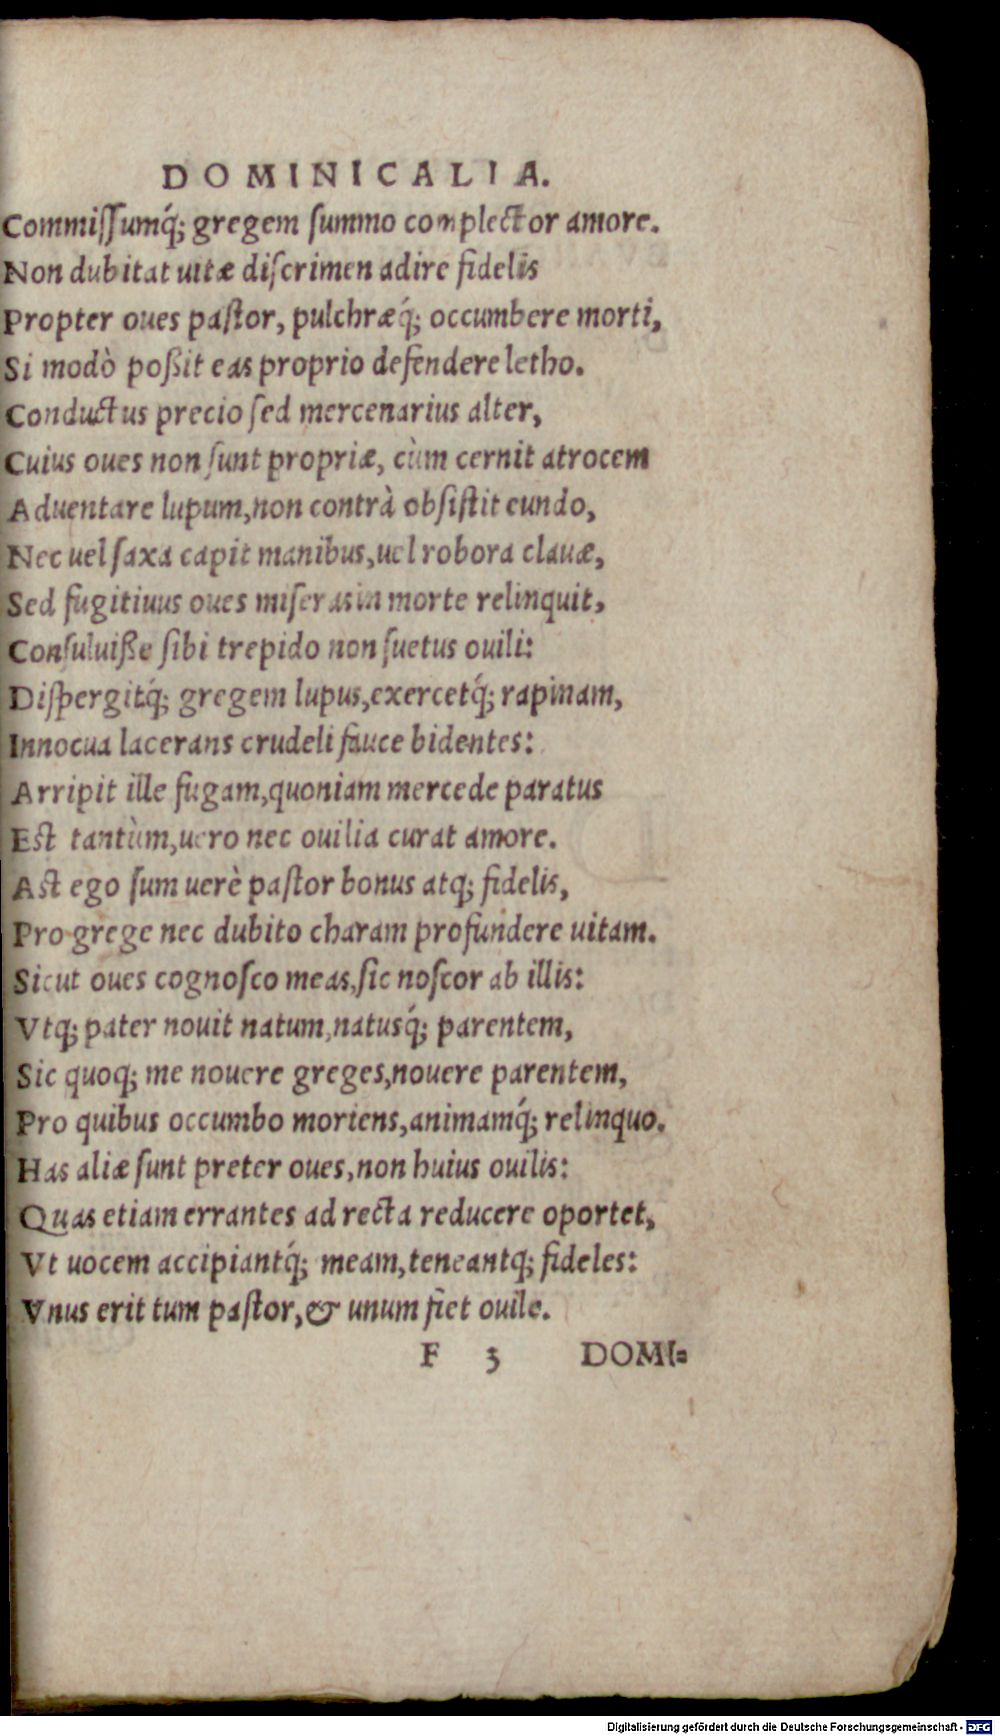 DOMINICALIA.
Commiſſumq́; gregem ſummo complector amore.
Non dubitat uitæ diſcrimen adire fidelis
Propter oues paſtor, pulchræq́; occumbere morti,
Si modò poßit eas proprio defendere letho.
Conductus precio ſed mercenarius alter,
Cuius oues non ſunt propriæ, cùm cernit atrocem
Aduentare lupum, non contrà obſiſtit eundo,
Nec uel ſaxa capit manibus, uel robora clauæ,
Sed fugitiuus oues miſeras in morte relinquit,
Conſuluiße ſibi trepido non ſuetus ouili:
Diſpergitq́; gregem lupus, exercetq́; rapinam,
Innocua lacerans crudeli fauce bidentes:
Arripit ille fugam, quoniam mercede paratus
Eſt tantùm, uero nec ouilia curat amore.
Aſt ego ſum uerè paſtor bonus atq; fidelis,
Pro grege nec dubito charam profundere uitam.
Sicut oues cognoſco meas, ſic noſcor ab illis:
Vtq; pater nouit natum, natusq́; parentem,
Sic quoq; me nouere greges, nouere parentem,
Pro quibus occumbo moriens, animamq́; relinquo.
Has aliæ ſunt preter oues, non huius ouilis:
Quas etiam errantes ad recta reducere oportet,
Vt uocem accipiantq́; meam, teneantq; fideles:
Vnus erit tum paſtor, & unum fiet ouile.
F 3 DOMI=
Digitalisierung gefördert durch die Deutsche Forschungsgemeinschaft - DFG